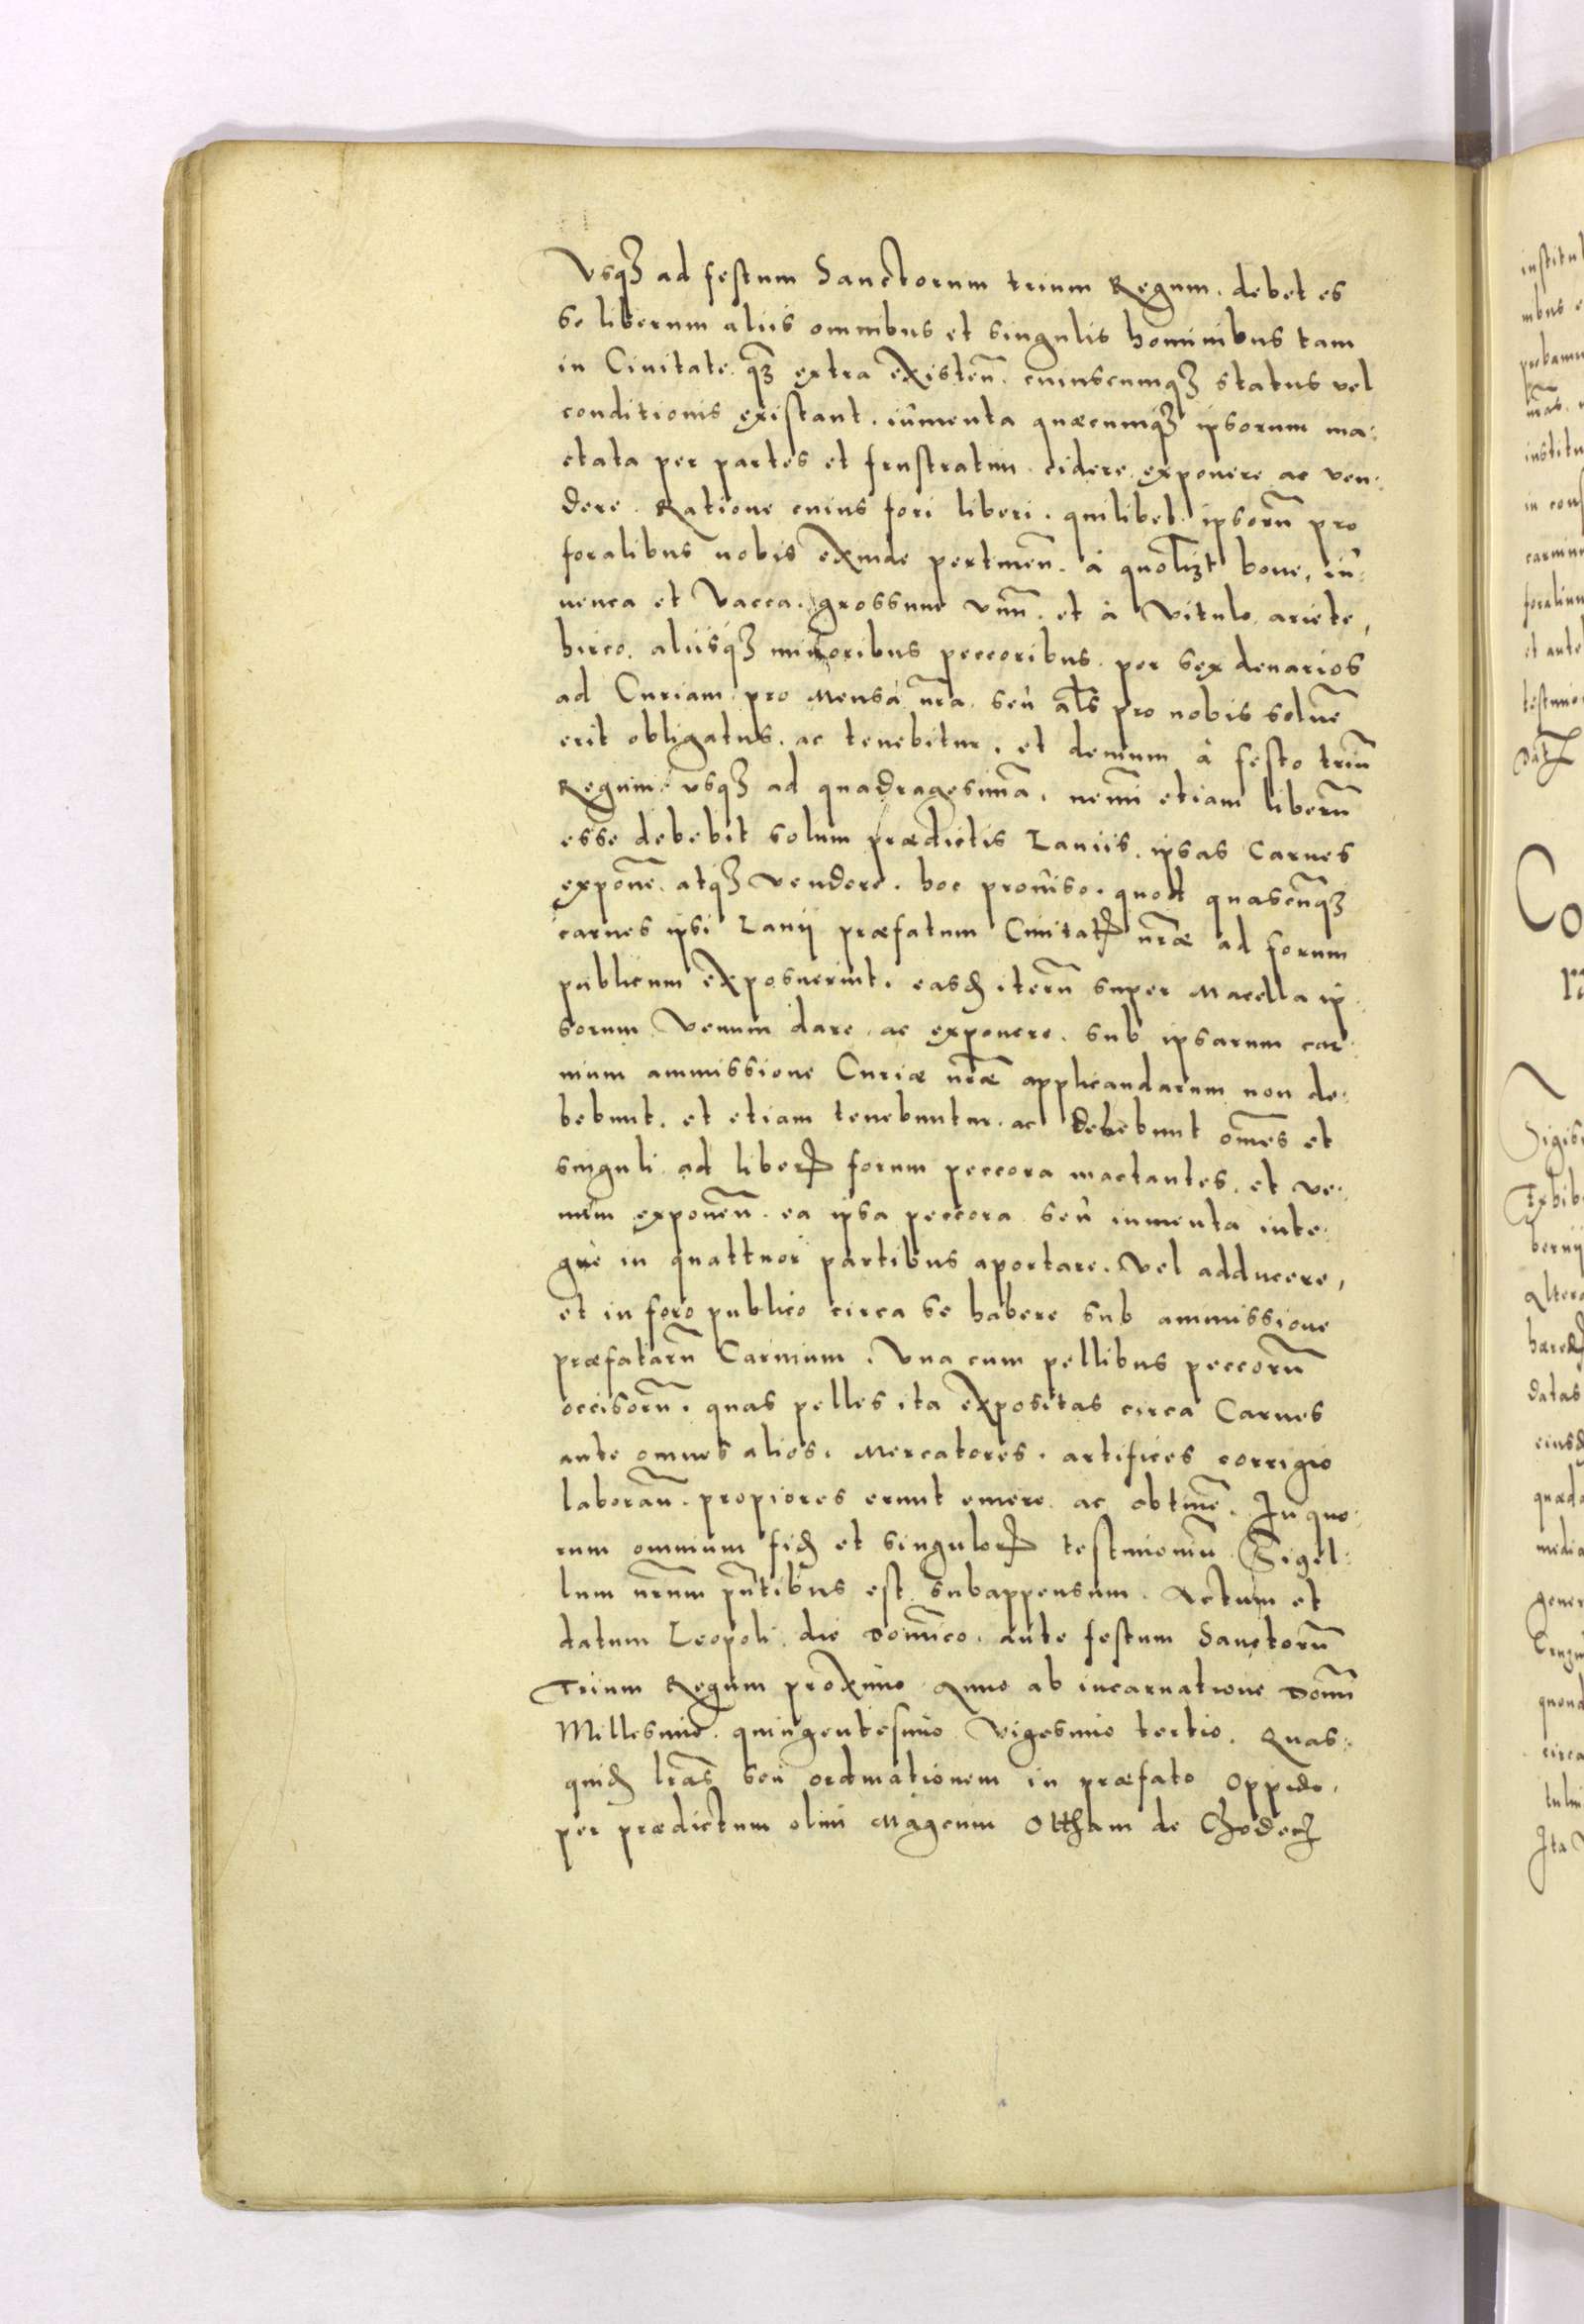 Vsq3 ad festum Sanctorum trium Regum. debet es
se liberum aliis omnibus et singulis hominibus tam
in Ciuitate. q3 extra existen̄. cuiuscumq3 status vel
conditionis existant. iumenta quæcumq3 ipsorum ma:
ctata per partes et frustratim. cidere exponere ac ven:
dere. Ratione cuius fori liberi. quilibet ipsorū pro
foralibus nobis exinde pertinen̄. à quol3t boue, iu:
uenca et Vacca. grossum vnū. et à Vitulo ariete,
hirco. aliisq3 minoribus peccoribus. per sex denarios
ad Curiam pro Mensa nr̄a. seu al̄s pro nobis soluē
erit obligatus. ac tenebitur. et demum à festo triū
Regum. vsq3 ad quadragesimā. nemī etiam liberū
esse debebit solum prædictis Laniis. ipsas Carnes
exponē. atq3 Vendere. hoc prouiso. quod quascūq3
carnes ipsi Lanij præfatum Ciuitatꝭ nr̄æ ad forum
publicum exposuerint. easd iterū super Macella ip:
sorum Venum dare ac exponere. sub ipsarum car:
nium ammissione Curiæ nr̄æ applicandarum non de:
bebunt. et etiam tenebuntur. ac debebunt om̄es et
singuli ad liberꝝ forum peccora mactantes. et ve:
num exponen̄. ea ipsa peccora seu iumenta inte:
gre in quattuor partibus aportare. Vel adducere,
et in foro publico circa se habere sub ammissione
præfatarū Carnium. Vna cum pellibus peccorū
occisorū. quas pelles ita expositas circa Carnes
ante omnes alios. Mercatores. artifices corrigio
laboran̄. propiores erunt emere ac obtinē. In quo:
rum omnium fid et singulorꝝ testimoniū Sigil:
lum nr̄um pn̄tibus est subappensum. Actum et
datum Leopoli. die Domīco. ante festum Sanctorū
Trium Regum proximo Anno ab incarnatione Domī
Millesimo. quingentesimo Vigesimo tertio. Quas:
quid lr̄as seu ordinationem in præfato Oppido.
per prædictum olim Magcum Ottham de Chodecz